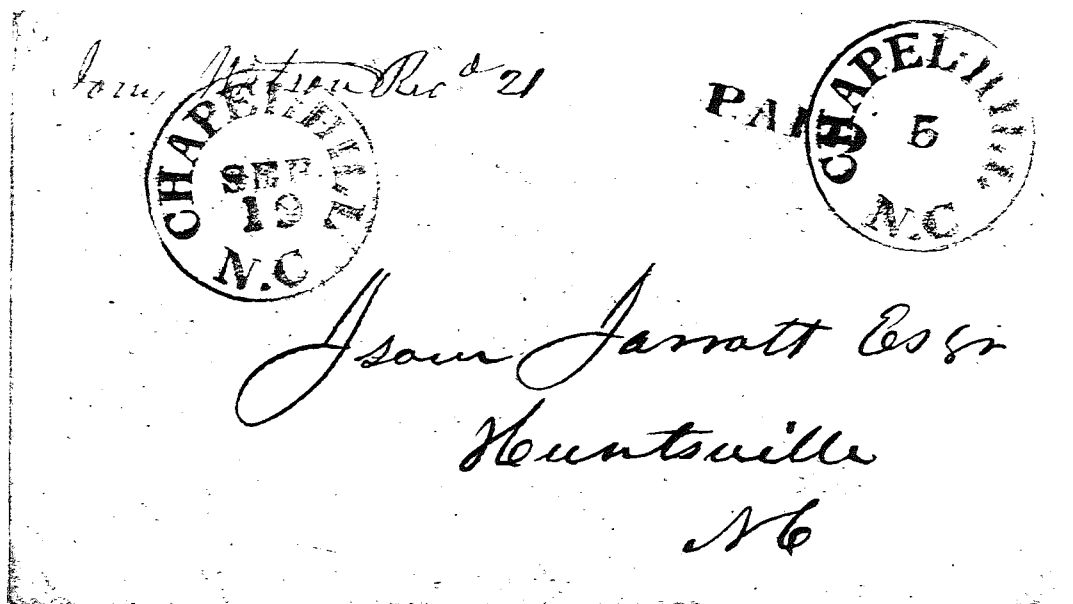 Recd 21
CHAPEL HILL
SEP
19
N.C
PAID
CHAPEL HILL
5
N.C
Isom Jarratt Esqr
Huntsville
NC